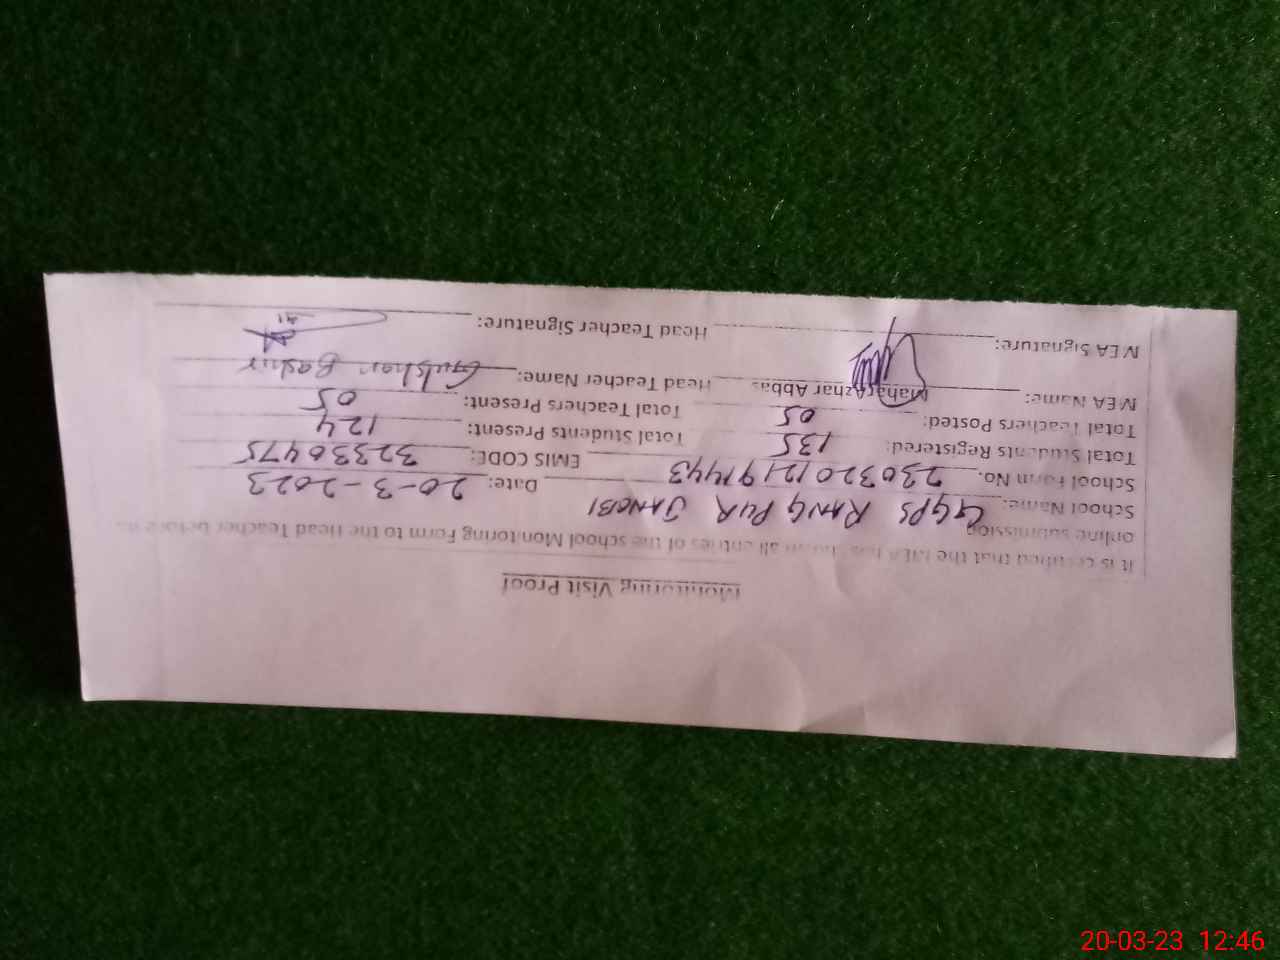 Monitoring Visit Proof
It is certified that the MEA has shown all entries of the school Monitoring Form to the Head Teacher before its
online submission
School Name: GGPS RANG PUR JANOBI Date: 20-3-2023
School Form No. 230320121191443 EMIS CODE: 32330475
Total Students Registered: 135 Total Students Present: 124
Total Teachers Posted: 05 Total Teachers Present: 05
MEA Name: Mahar Azhar Abbas Head Teacher Name: Gulshan Bashir
MEA Signature: Head Teacher Signature:
20-03-23 12:46